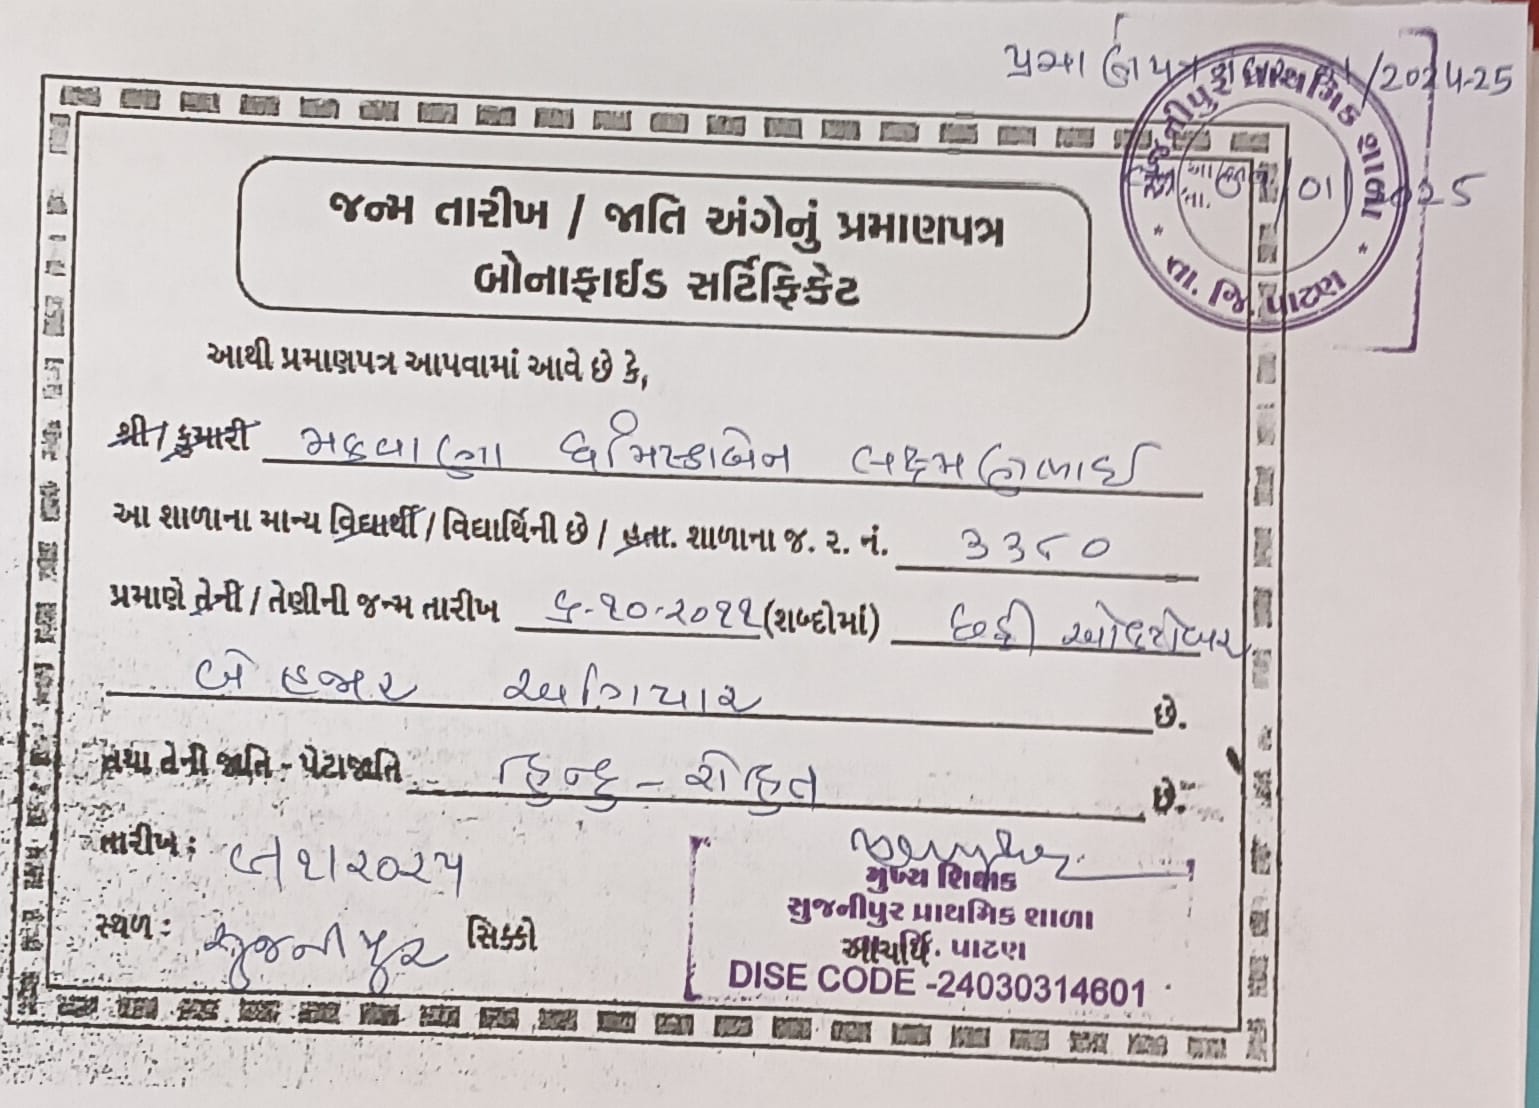 પ્રમાણપત્ર /2024-25
સુજનીપુર પ્રાથમિક શાળા
તા. જિ. પાટણ
તા. /01/2025
જન્મ તારીખ / જાતિ અંગેનું પ્રમાણપત્ર
બોનાફાઈડ સર્ટિફિકેટ
આથી પ્રમાણપત્ર આપવામાં આવે છે કે,
શ્રી / કુમારી મકવાણા ધર્મિસ્કાબેન લક્ષ્મણભાઈ
આ શાળાના માન્ય વિદ્યાર્થી / વિદ્યાર્થિની છે / હતા. શાળાના જ. ર. નં. ૩૩૮૦
પ્રમાણે તેની / તેણીની જન્મ તારીખ ૬-૧૦-૨૦૧૧ (શબ્દોમાં) છઠ્ઠી ઓક્ટોબર
બે હજાર અગિયાર છે.
તથા તેની જાતિ - પેટાજાતિ હિન્દુ - રોહિત છે.
તારીખ : ૯/૧/૨૦૨૫
સ્થળ : સુજનીપુર સિક્કો
મુખ્ય શિક્ષક
સુજનીપુર પ્રાથમિક શાળા
પાટણ
DISE CODE -24030314601